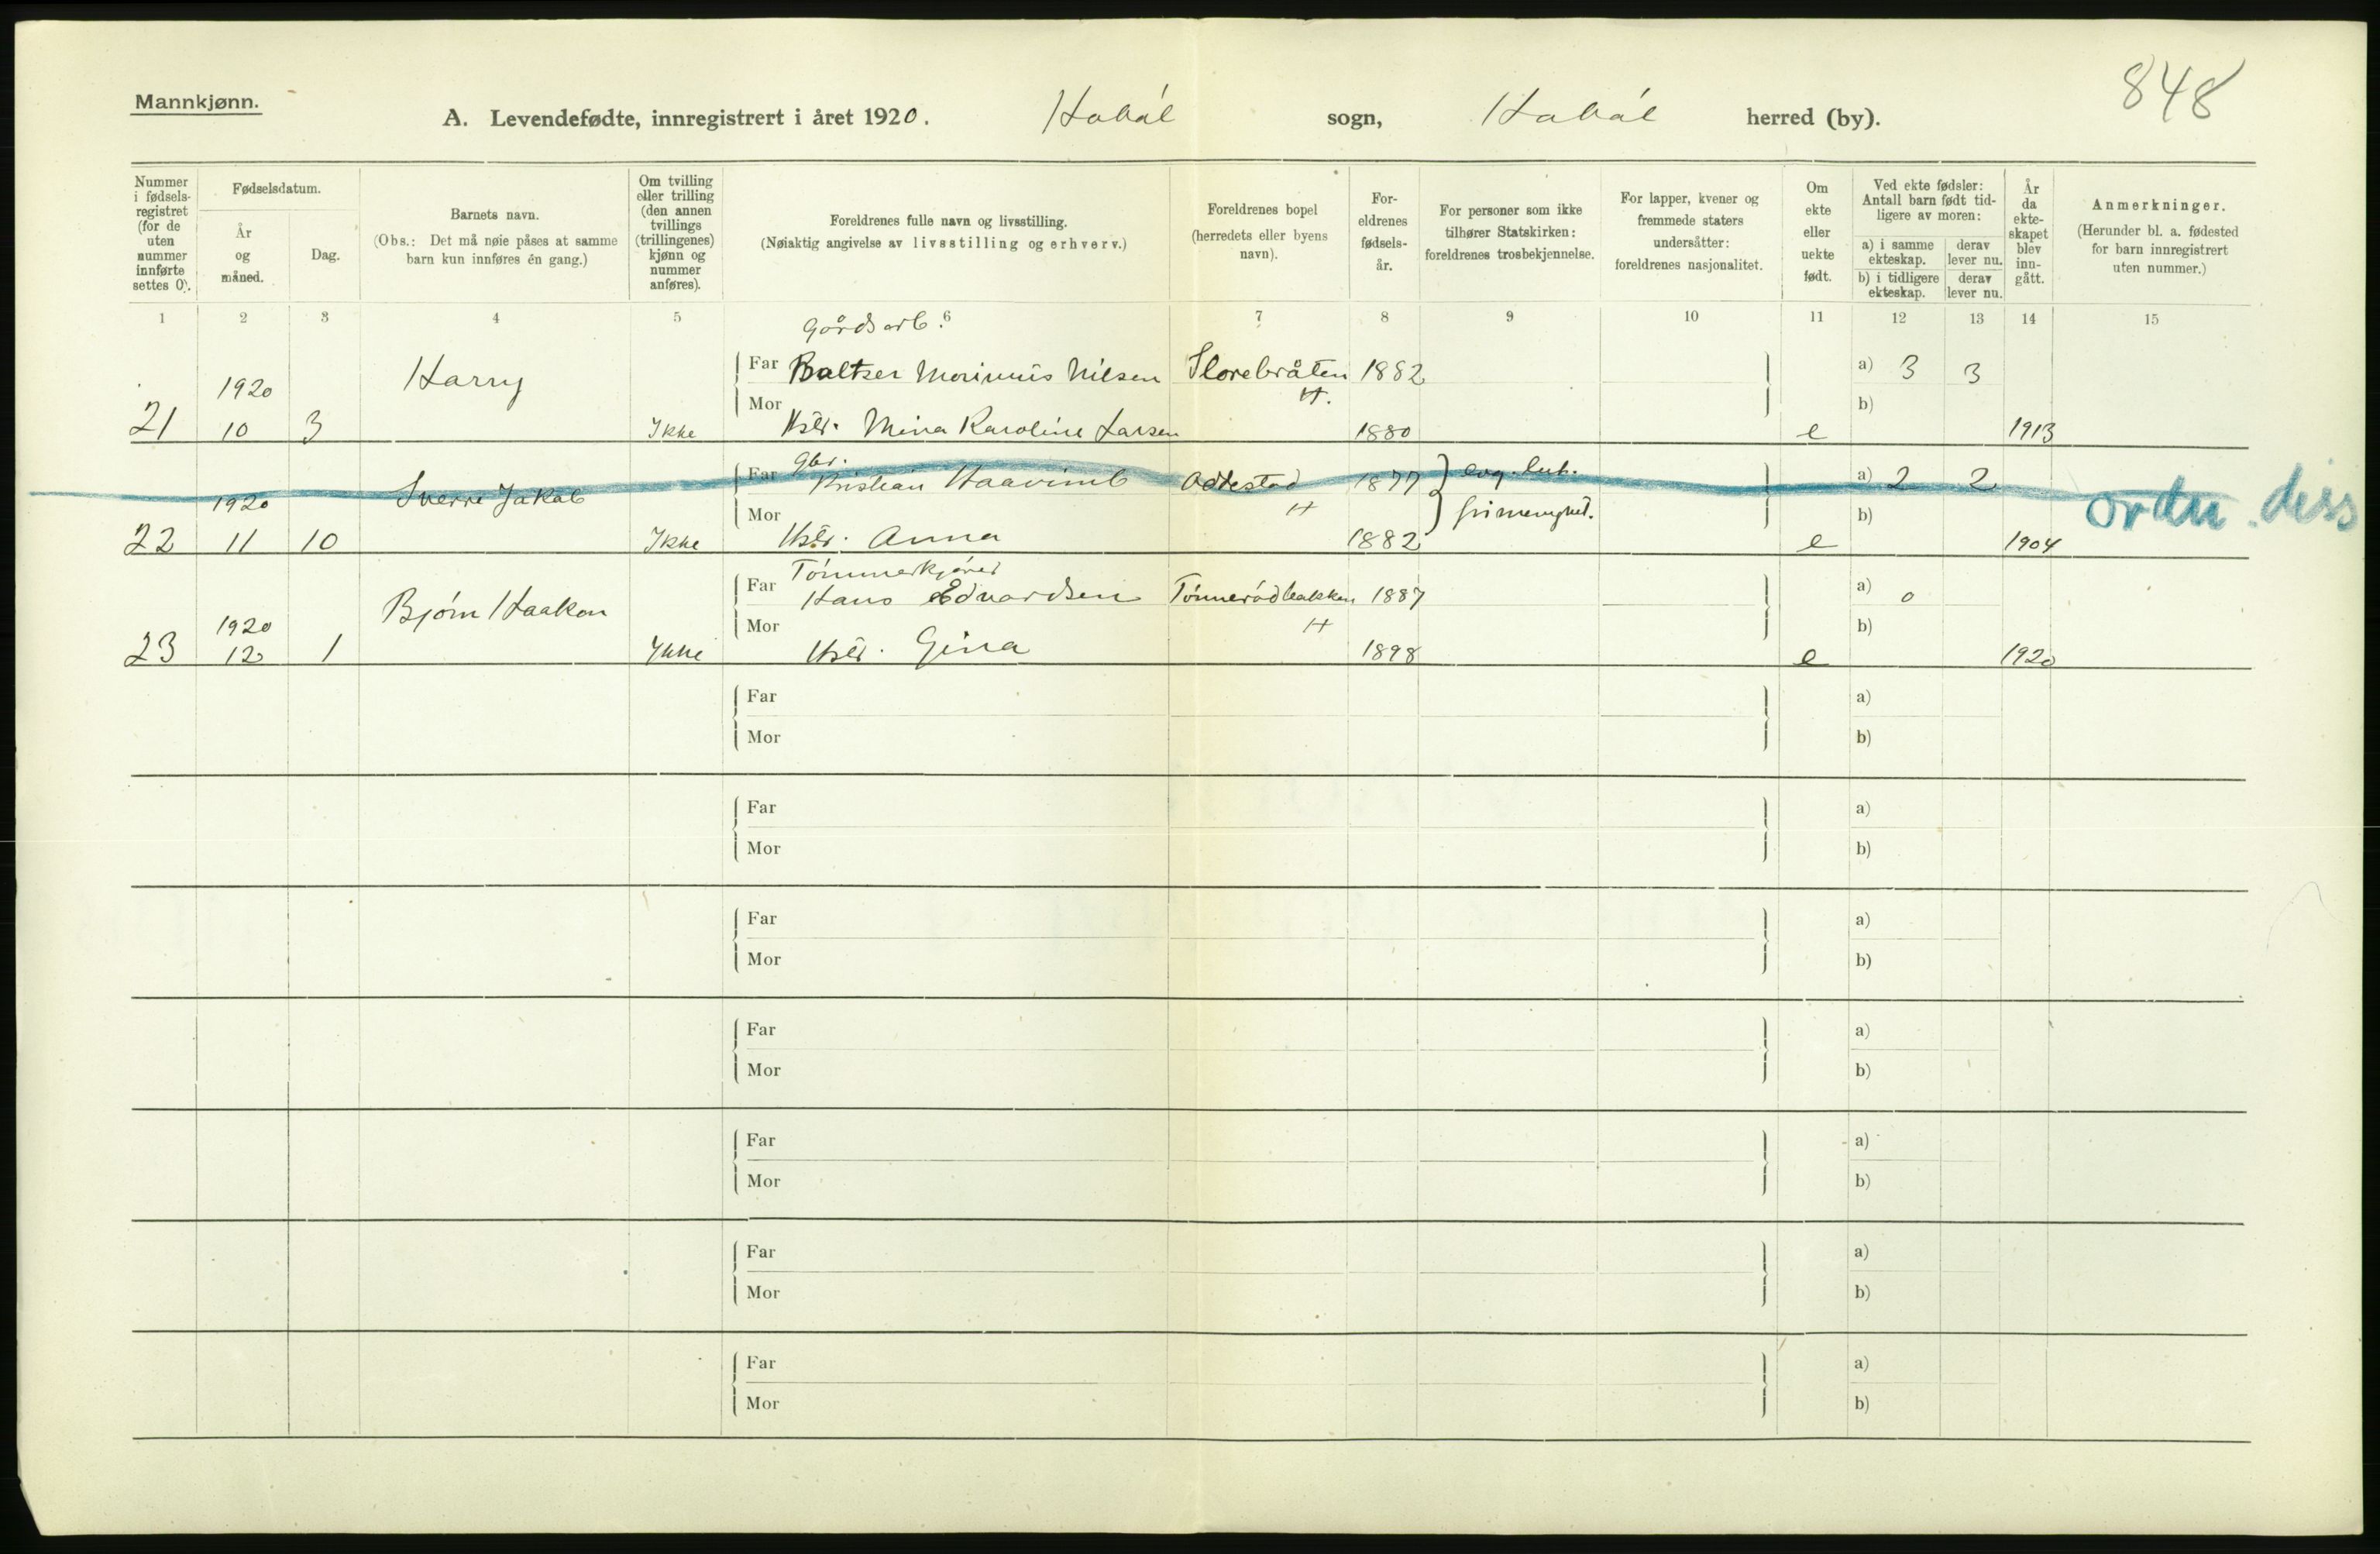 848
Mannkjønn.
A. Levendefødte, innregistrert i året 1920. Hobøl sogn, Hobøl herred (by).
Nummer i fødsels-registret (for de uten nummer innførte settes 0).
Fødselsdatum.
År og måned.
Dag.
Barnets navn.
(Obs.: Det må nøie påses at samme barn kun innføres én gang.)
Om tvilling eller trilling (den annen tvillings (trillingenes) kjønn og nummer anføres).
Foreldrenes fulle navn og livsstilling.
(Nøiaktig angivelse av livsstilling og erhverv.)
Foreldrenes bopel (herredets eller byens navn).
For-eldrenes fødsels-år.
For personer som ikke tilhører Statskirken: foreldrenes trosbekjennelse.
For lapper, kvener og fremmede staters undersåtter: foreldrenes nasjonalitet.
Om ekte eller uekte født.
Ved ekte fødsler: Antall barn født tid-ligere av moren:
a) i samme ekteskap. derav lever nu.
b) i tidligere ekteskap. derav lever nu.
År da ekte-skapet blev inn-gått.
Anmerkninger.
(Herunder bl. a. fødested for barn innregistrert uten nummer.)
1 2 3 4 5 6 7 8 9 10 11 12 13 14 15
Gårdsarb.
Harry Far Baltser Marinius Nilsen Slorebråten 1882 a) 3 3
1920 Mor H. b)
21 10 3 Ikke Hstr. Mina Karoline Larsen 1880 e 1913
gbr.
1920 Sverre Jakob Far Kristian Haavimb Oddestad 1877 evg. luth. a) 2 2
Mor H frimenighed. b) ordn. diss
22 11 10 Ikke Hstr. Anna 1882 e 1904
Tømmerkjører
Bjørn Haakon Far Hans Edvardsen Tønnerødbakken 1887 a) 0
1920 Mor H b)
23 12 1 Ikke Hstr. Gina 1898 e 1920
Far a)
Mor b)
Far a)
Mor b)
Far a)
Mor b)
Far a)
Mor b)
Far a)
Mor b)
Far a)
Mor b)
Far a)
Mor b)